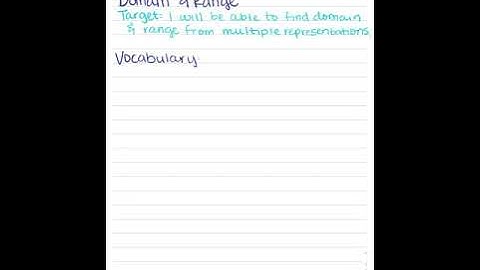 Domain & Range
Target: I will be able to find domain
& range from multiple representations
Vocabulary: